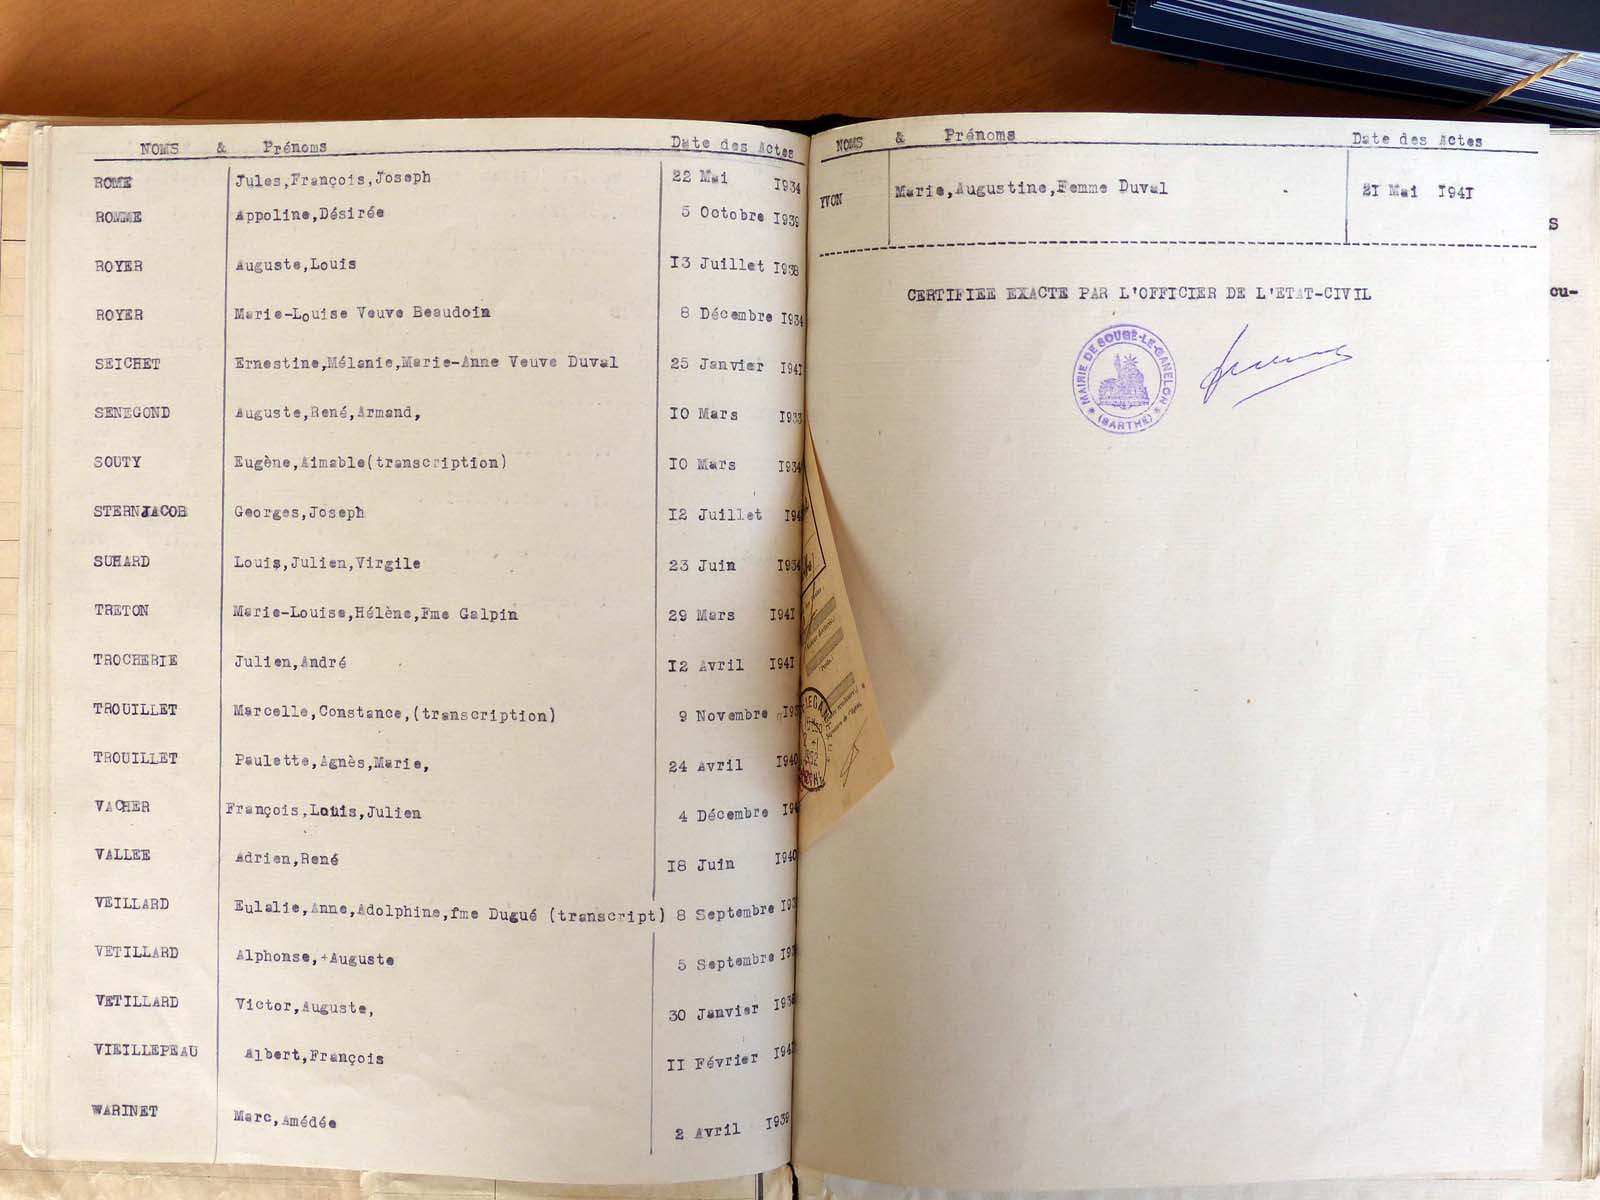 NOMS & Prénoms Date des Actes
ROME Jules,François,Joseph 22 Mai 1934
ROMME Appoline,Désirée 5 Octobre 1939
ROYER Auguste,Louis 13 Juillet 1938
ROYER Marie-Louise Veuve Beaudoin 8 Décembre 1934
SEICHET Ernestine,Mélanie,Marie-Anne Veuve Duval 25 Janvier 1941
SENEGOND Auguste,René,Armand, 10 Mars 1933
SOUTY Eugène,Aimable(transcription) 10 Mars 1934
STERNJACOB Georges,Joseph 12 Juillet
SUHARD Louis,Julien,Virgile 23 Juin 1934
TRETON Marie-Louise,Hélène,Fme Galpin 29 Mars 1941
TROCHERIE Julien,André 12 Avril 1941
TROUILLET Marcelle,Constance,(transcription) 9 Novembre
TROUILLET Paulette,Agnès,Marie, 24 Avril 1940
VACHER François,Louis,Julien 4 Décembre
VALLEE Adrien,René 18 Juin 1940
VEILLARD Eulalie,Anne,Adolphine,fme Dugué (transcript) 8 Septembre
VETILLARD Alphonse,+Auguste 5 Septembre
VETILLARD Victor,Auguste, 30 Janvier
VIEILLEPEAU Albert,François 11 Février
WARINET Marc,Amédée 2 Avril 1939
NOMS & Prénoms Date des Actes
YVON Marie,Augustine,Femme Duval 21 Mai 1941
CERTIFIEE EXACTE PAR L'OFFICIER DE L'ETAT-CIVIL
MAIRIE DE SOUGÉ-LE-GANELON
(SARTHE)
S
cu-